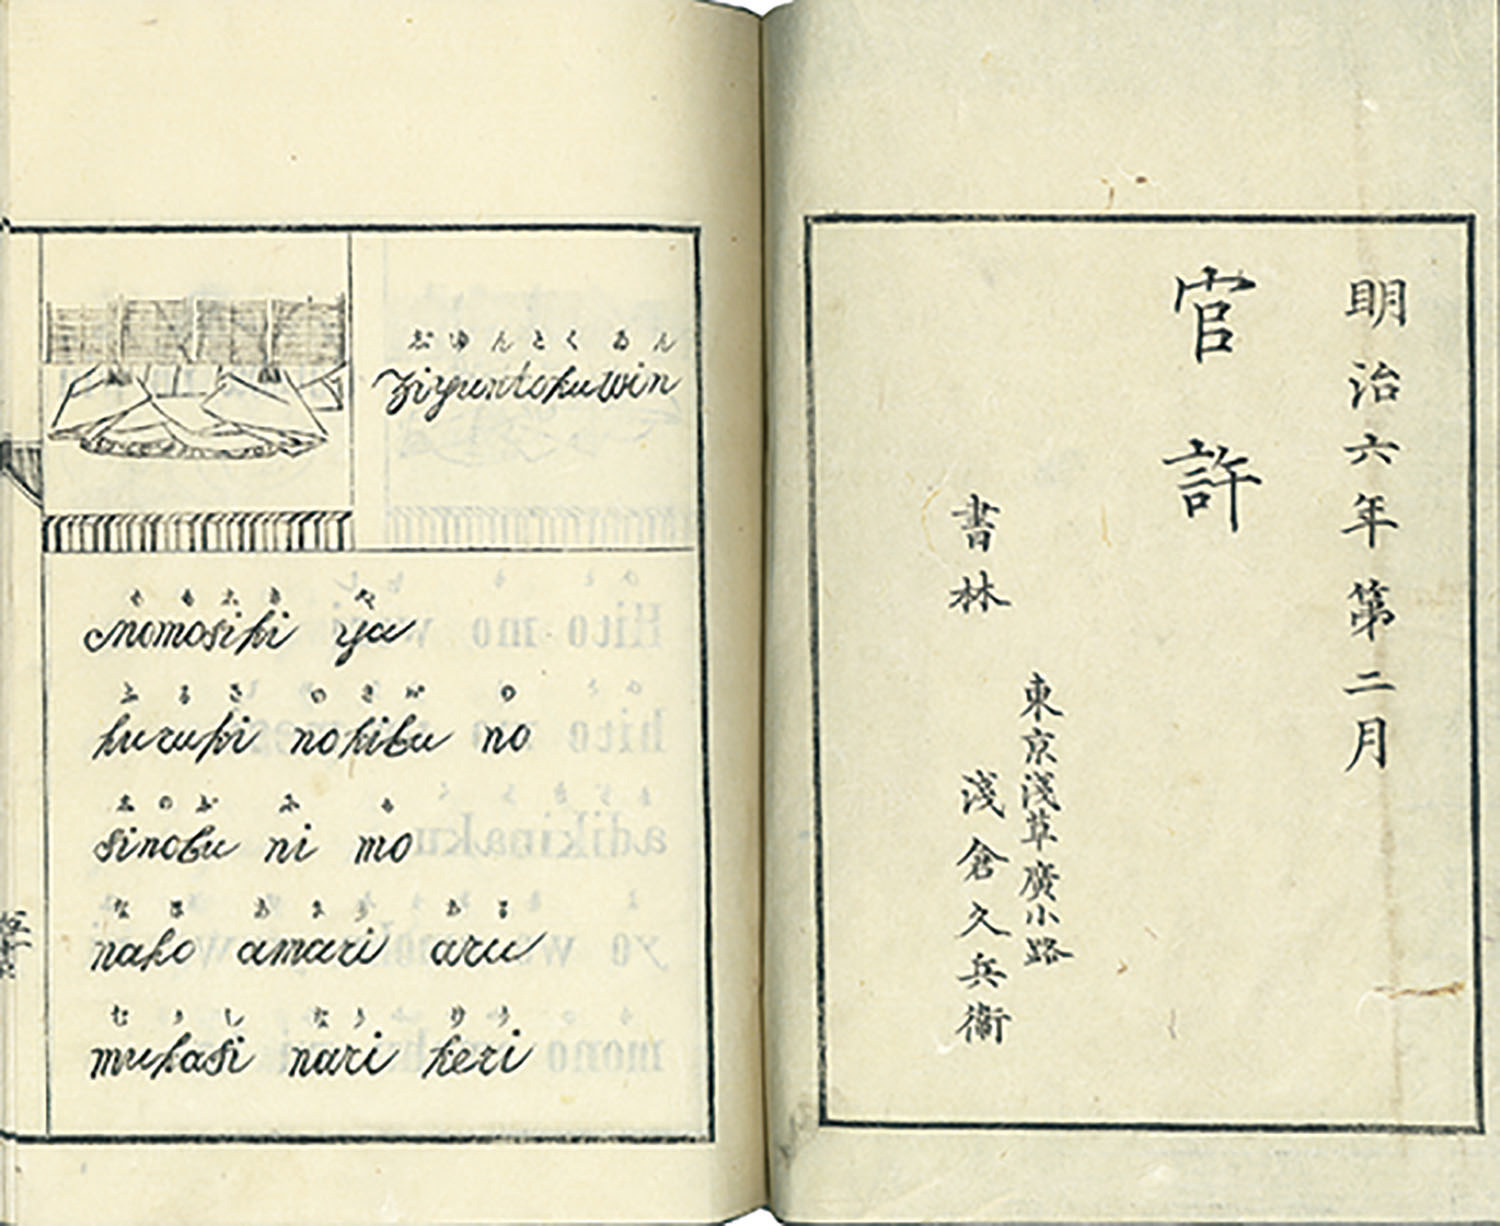 じゆんとくゐん
Ziyuntokuwin
ももしき や
Momosiki ya
ふるき のきば の
huruki nokiba no
しのぶ に も
sinobu ni mo
なほ あまり ある
naho amari aru
むかし なり けり
mukasi nari keri
明治六年第二月
官許
東京淺草廣小路
書林 淺倉久兵衞